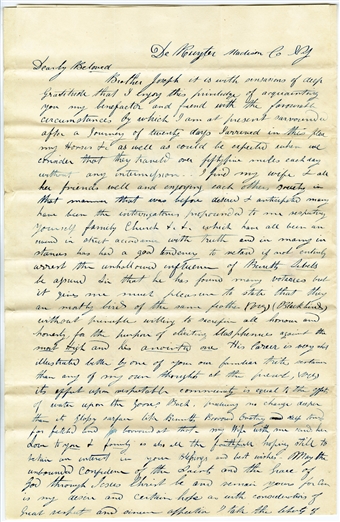 De Ruyter Madison Co. N.Y
Dearly Beloved
Brother Joseph it is with sensations of deep
gratitude that I enjoy this priviledge of acquainting
you my benefactor and friend with the
circumstances by which I am at present surrounded
after a Journey of twenty days I arrived in this place
my Horses &c as well as could be expected when we
consider that they traveled over fiftyfive miles each day
without any intermission. I find my wife & all
her friends well and enjoying each others society in
that manner that was before desired & anticipated many
have been the interrogations propounded to me respecting
yourself family Church &c. &c. which have all been an
swered in strict accordance with truth and in many in
stances has had a good tendency to retard if not entirely
arrest the unhallowed influence of
be assured Sir that he has found many votaries but
it gives me much pleasure to state that they
are mostly birds of the same feather
without principle willing to sacrifice all honour and
honesty for the purpose of eliciting blasphemies against the
most high and his anointed one His Career is very well
illustrated by one of your
than any of my own thought at the present,
its effect upon respectable community is equal to the effect
of water upon the Goose's Back, making no change deeper
than its glossy surface like
for
love to you & family as also all the faithfull hoping still to
retain an interest in your and best wishes. May the
unbounded Confidence of the Saints and the Grace of
God through Jesus Christ be and remain yours for ever
is my desire and certain hope as with considerations of
Great respect and sincere affection I take the liberty of